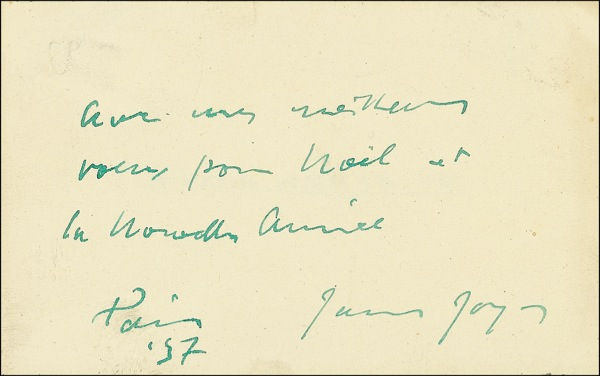 avec mes meilleurs
voeux pour Noël et
la Nouvelle Année
Paris James Joyce
'37